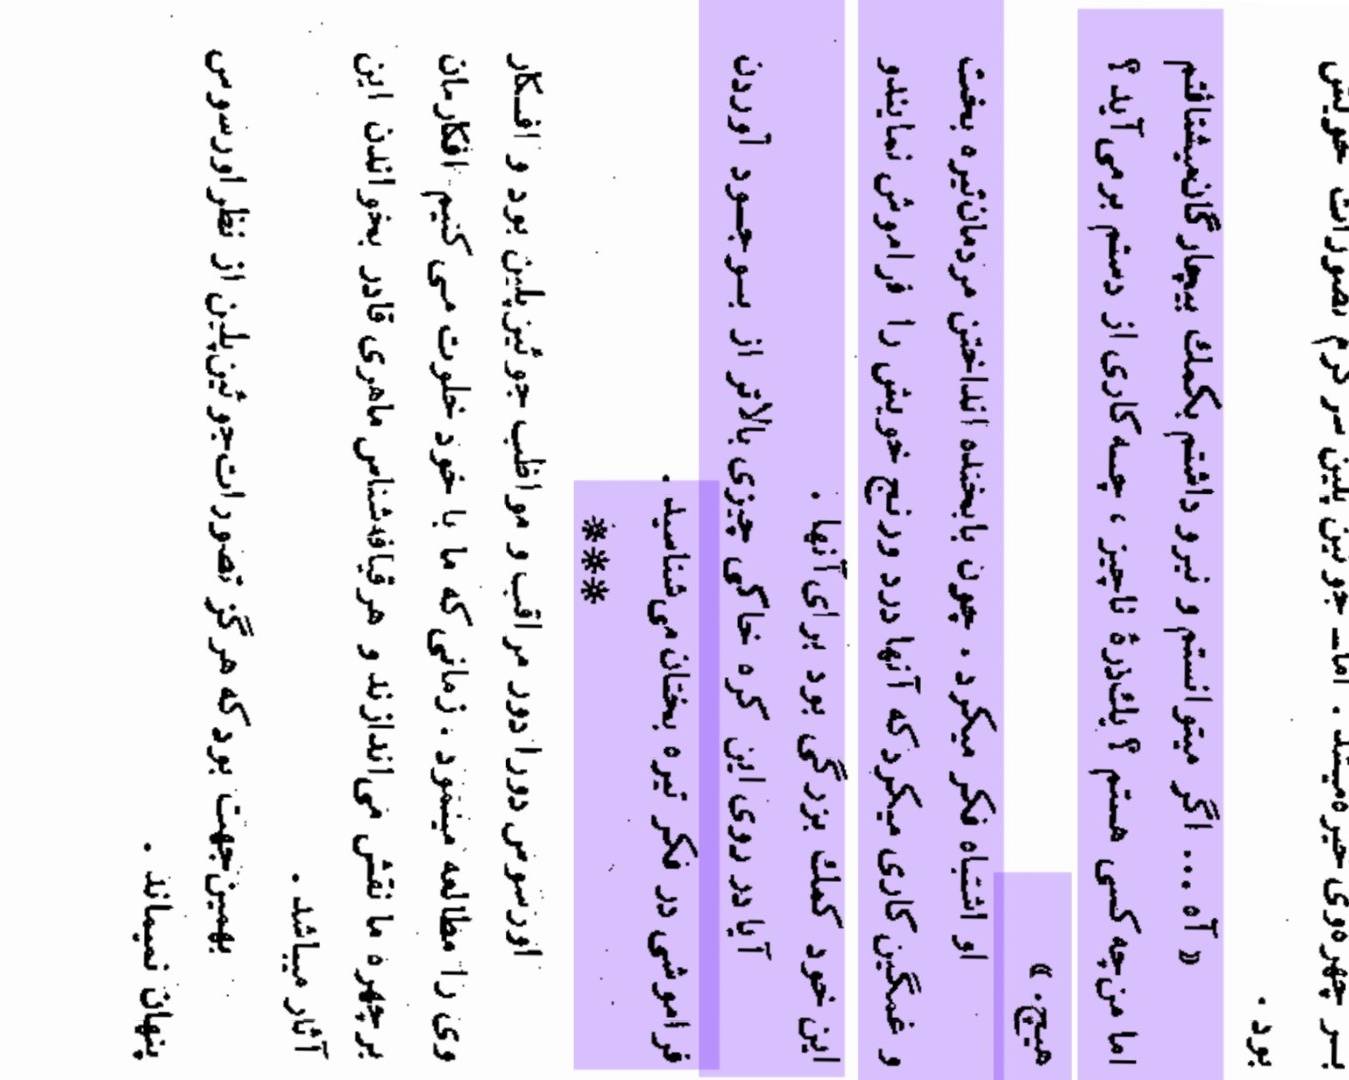 بـر چهره‌وی خیره‌میشد . امـا جوئین پلین سرگرم تصورات خویش
بود .
« آه ... اگر میتوانستم و نیرو داشتم بکمك بیچارگان‌میشتافتم
اما من‌چه کسی هستم ؟ یك‌ذرهٔ ناچیز ، چـه کاری از دستم برمی‌آید ؟
هیچ. »
او اشتباه فکر میکرد . چون باخنده انداختن مردمان‌تیره بخت
و غمگین کاری میکرد که آنها درد ورنج خویش را فراموش نمایندو
این خود کمك بزرگی بود برای آنها .
آیا در روی این کره خاکی چیزی بالاتر از بـوجـود آوردن
فراموشی در فکر تیره بختان می‌شناسید .
***
اورسوس دورادور مراقب و مواظب جوئین‌پلین بود و افـکار
وی را مطالعه مینمود . زمانی که ما با خود خلوت مـی کنیم افکارمان
برچهره ما نقش می‌اندازند و هر قیافه‌شناس ماهری قادر بخواندن این
آثار میباشد .
بهمین‌جهت بود که هرگز تصورات‌جوئین‌پلین از نظر اورسوس
پنهان نمیماند .